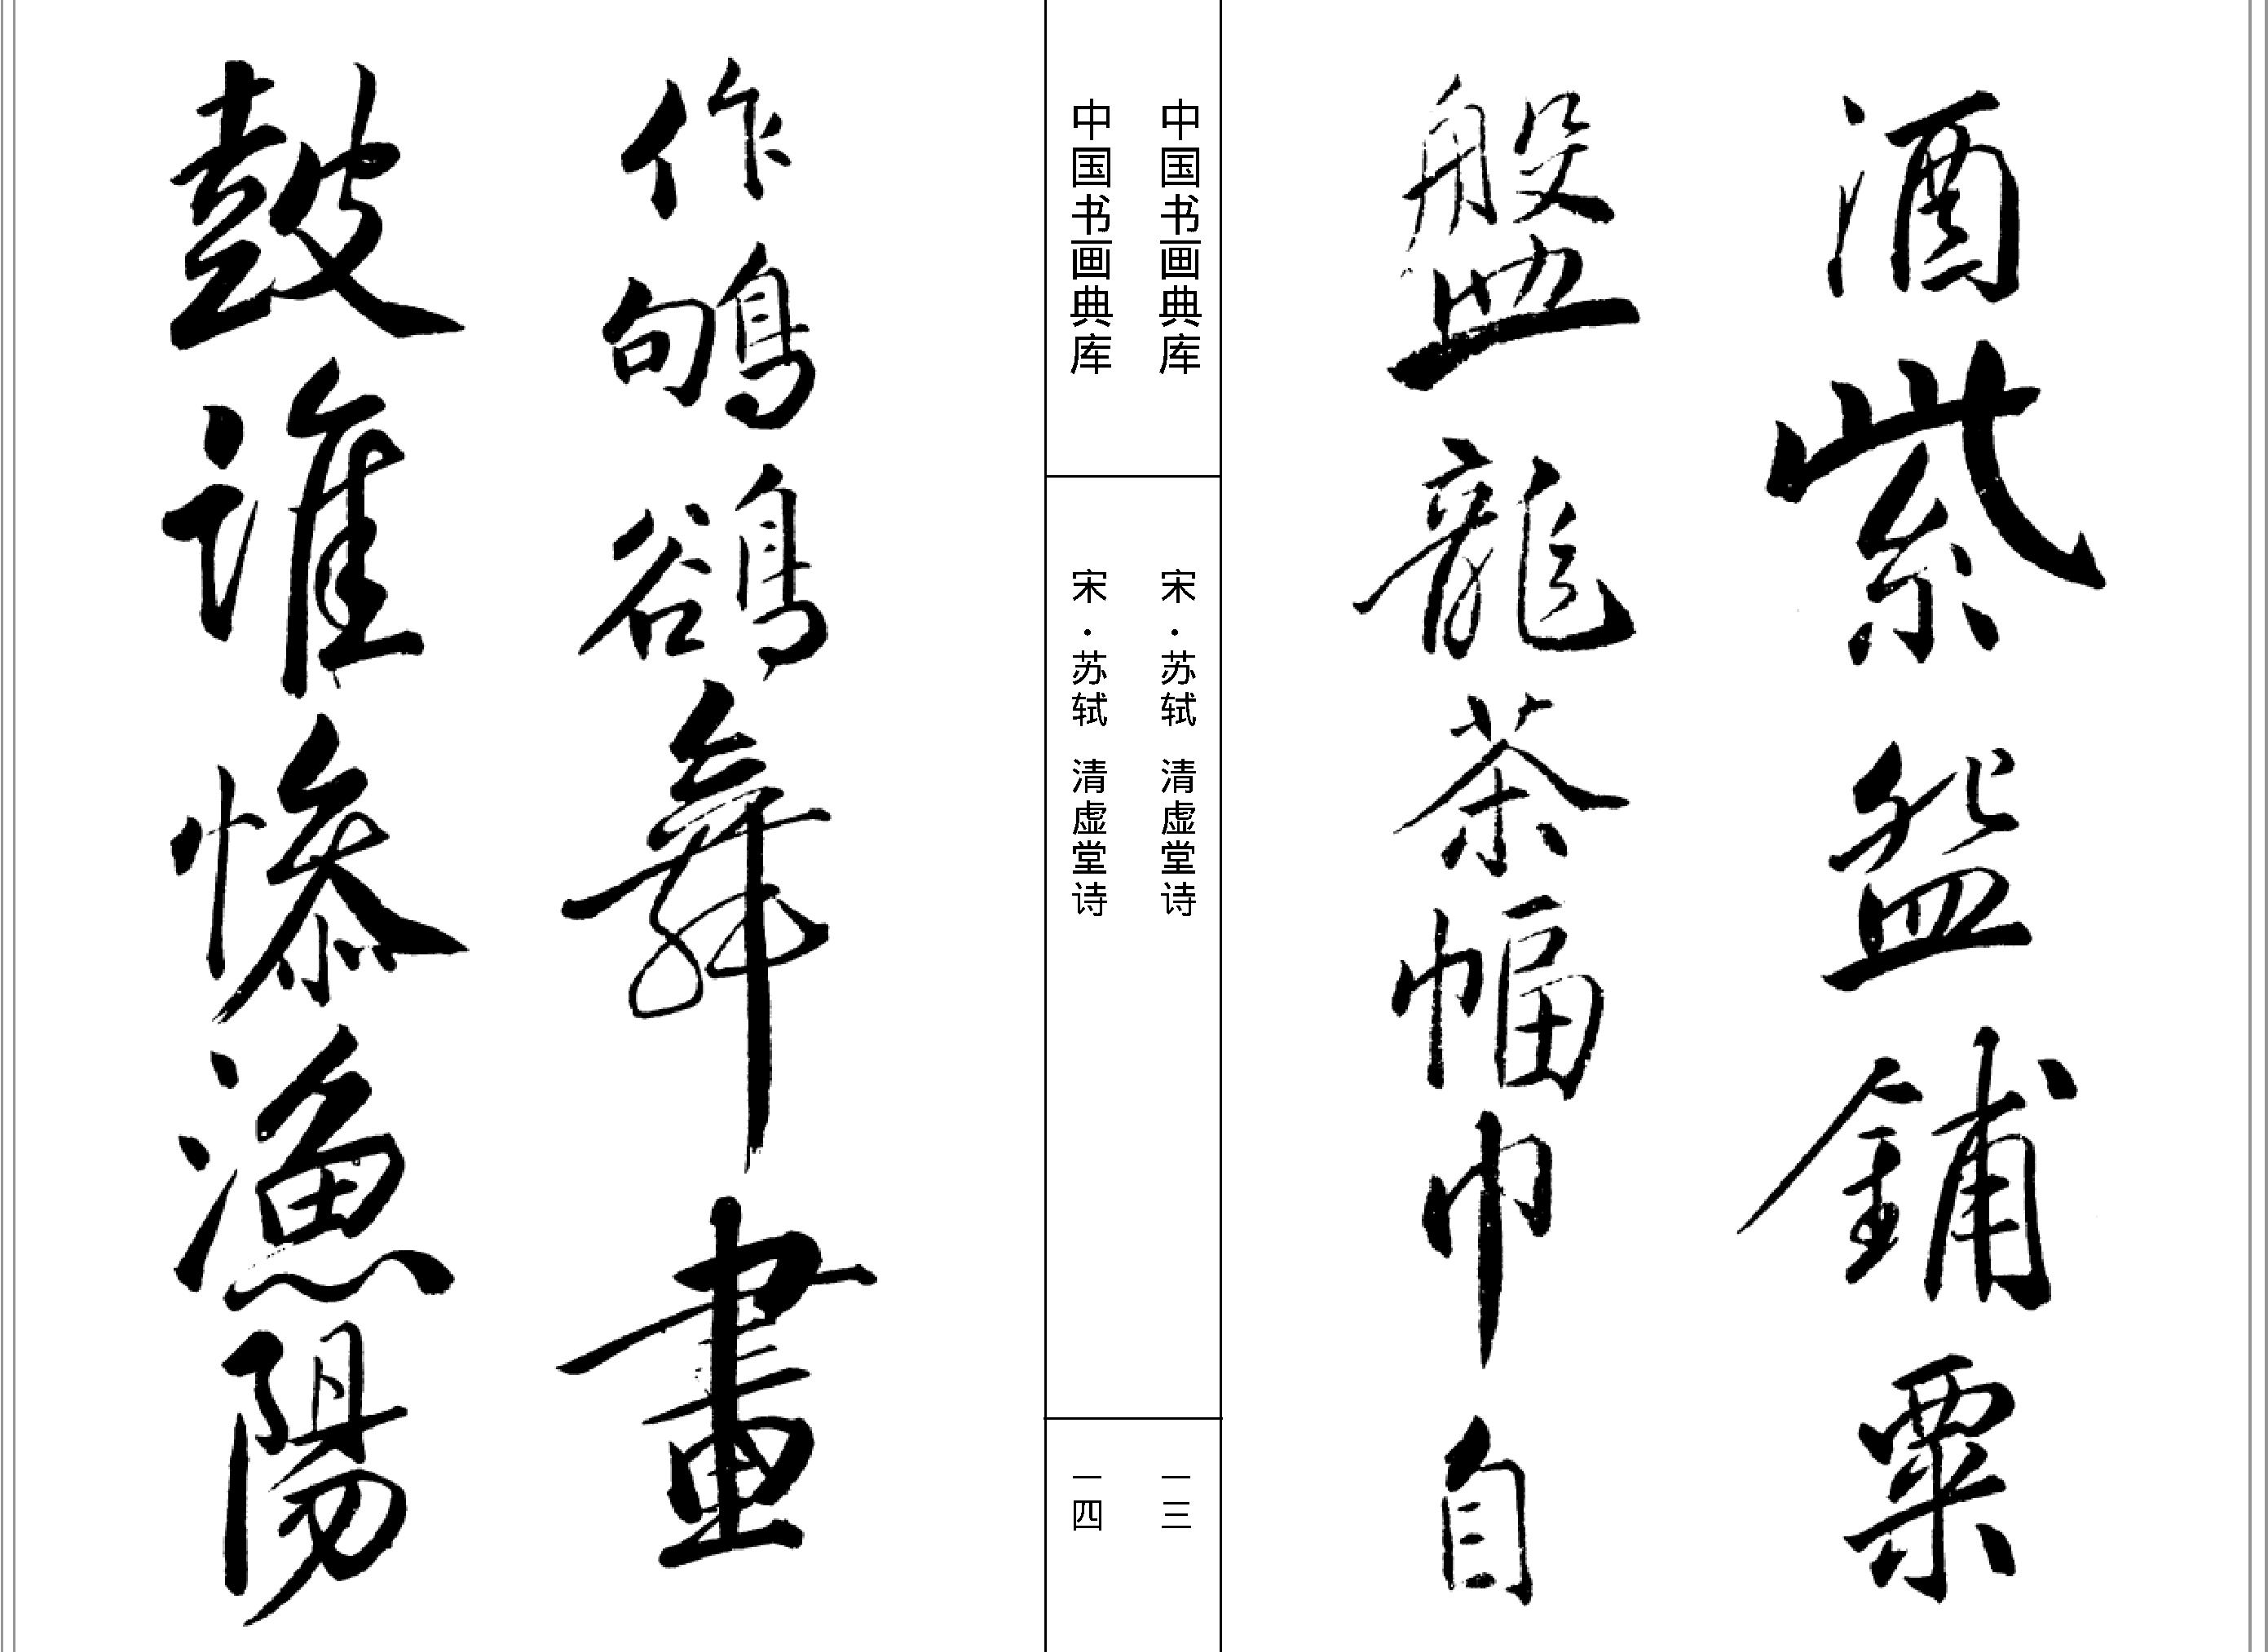 酒紫盌鋪粟
盤龍茶幅巾自
中国书画典库 宋·苏轼 清虚堂诗 一三
中国书画典库 宋·苏轼 清虚堂诗 一四
作鴝鵒舞畫
鼓誰慘漁陽